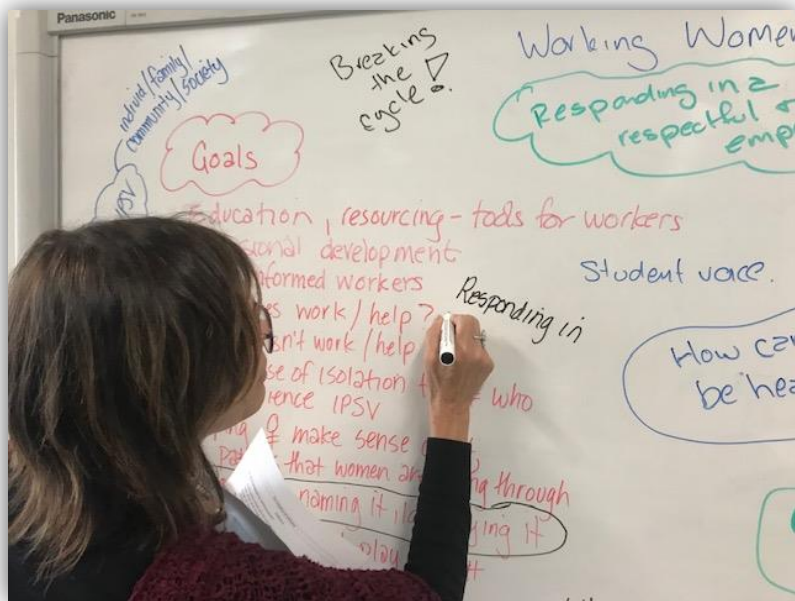 Panasonic
individ/family/
community/society
IPSV
Breaking
the
cycle!
Working Women
Responding in a
respectful &
emp
Goals
Education, resourcing - tools for workers
development
informed workers
work/help?
Responding in
work/help
of isolation who
IPSV
& make sense
that women through
naming it it
Student voice.
How can
be hea